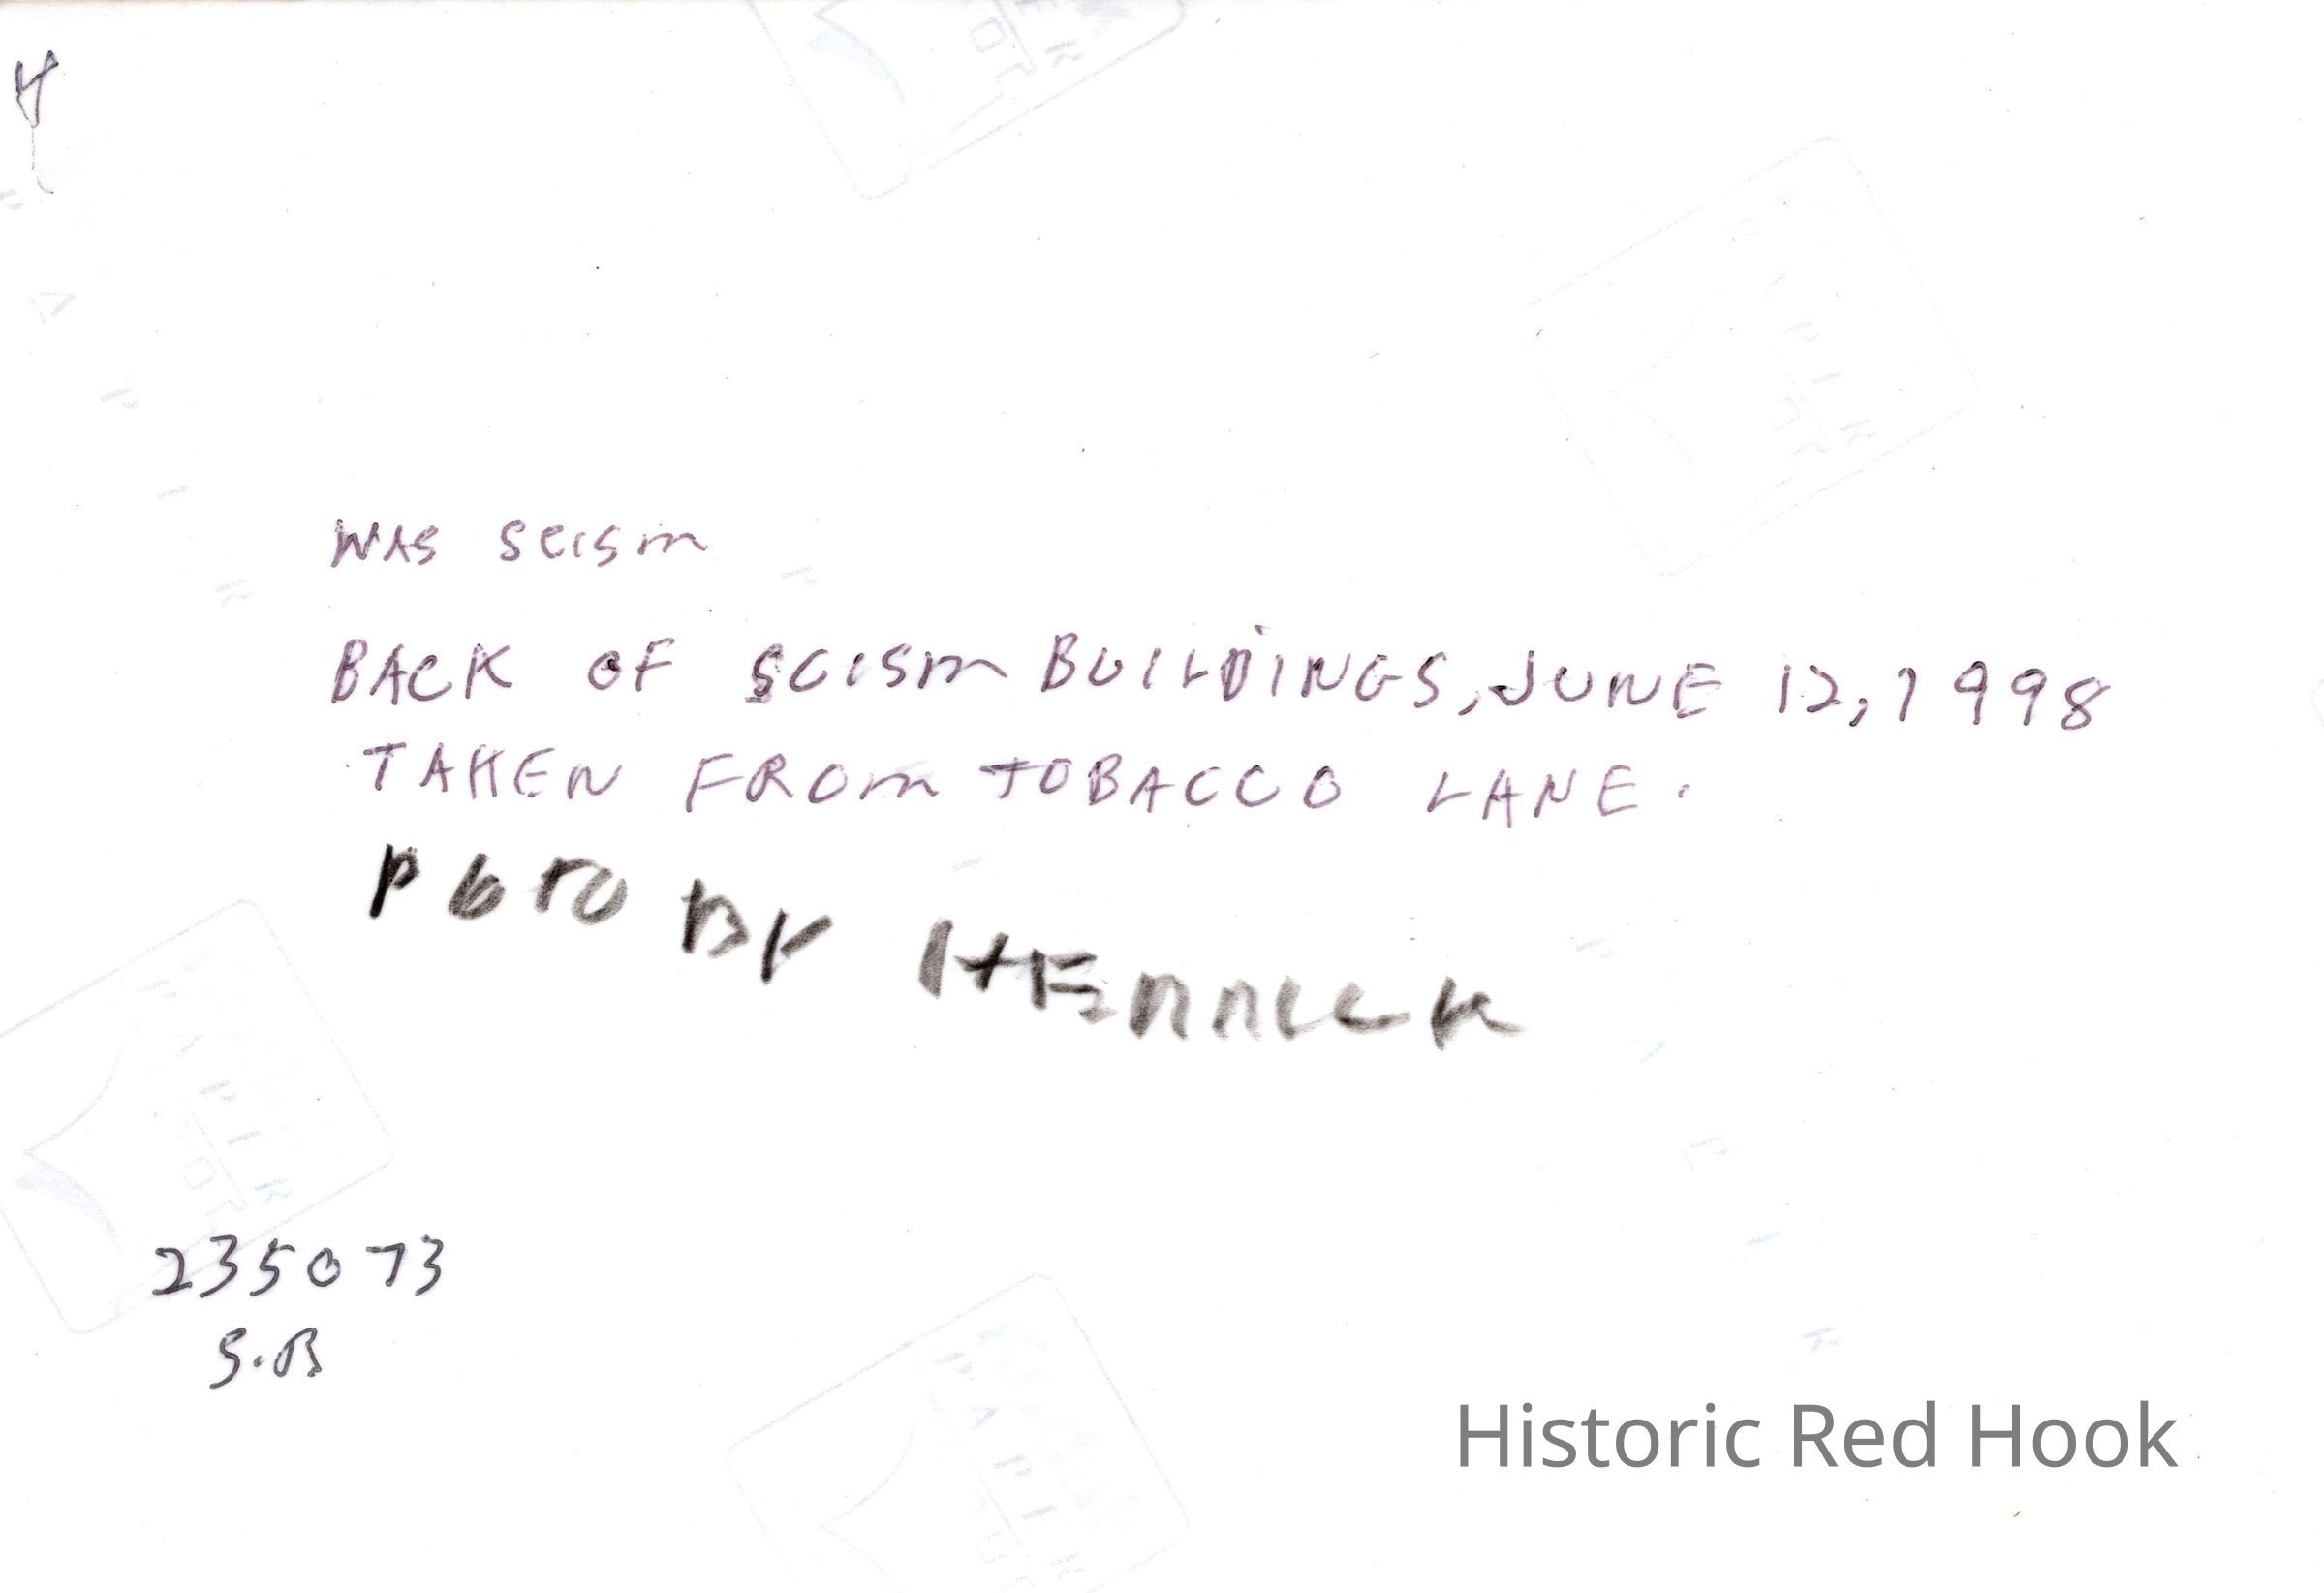 WAS Scism
BACK OF SCISM BUILDINGS, JUNE 12, 1998
TAKEN FROM TOBACCO LANE.
BY
235073
S.B
Historic Red Hook